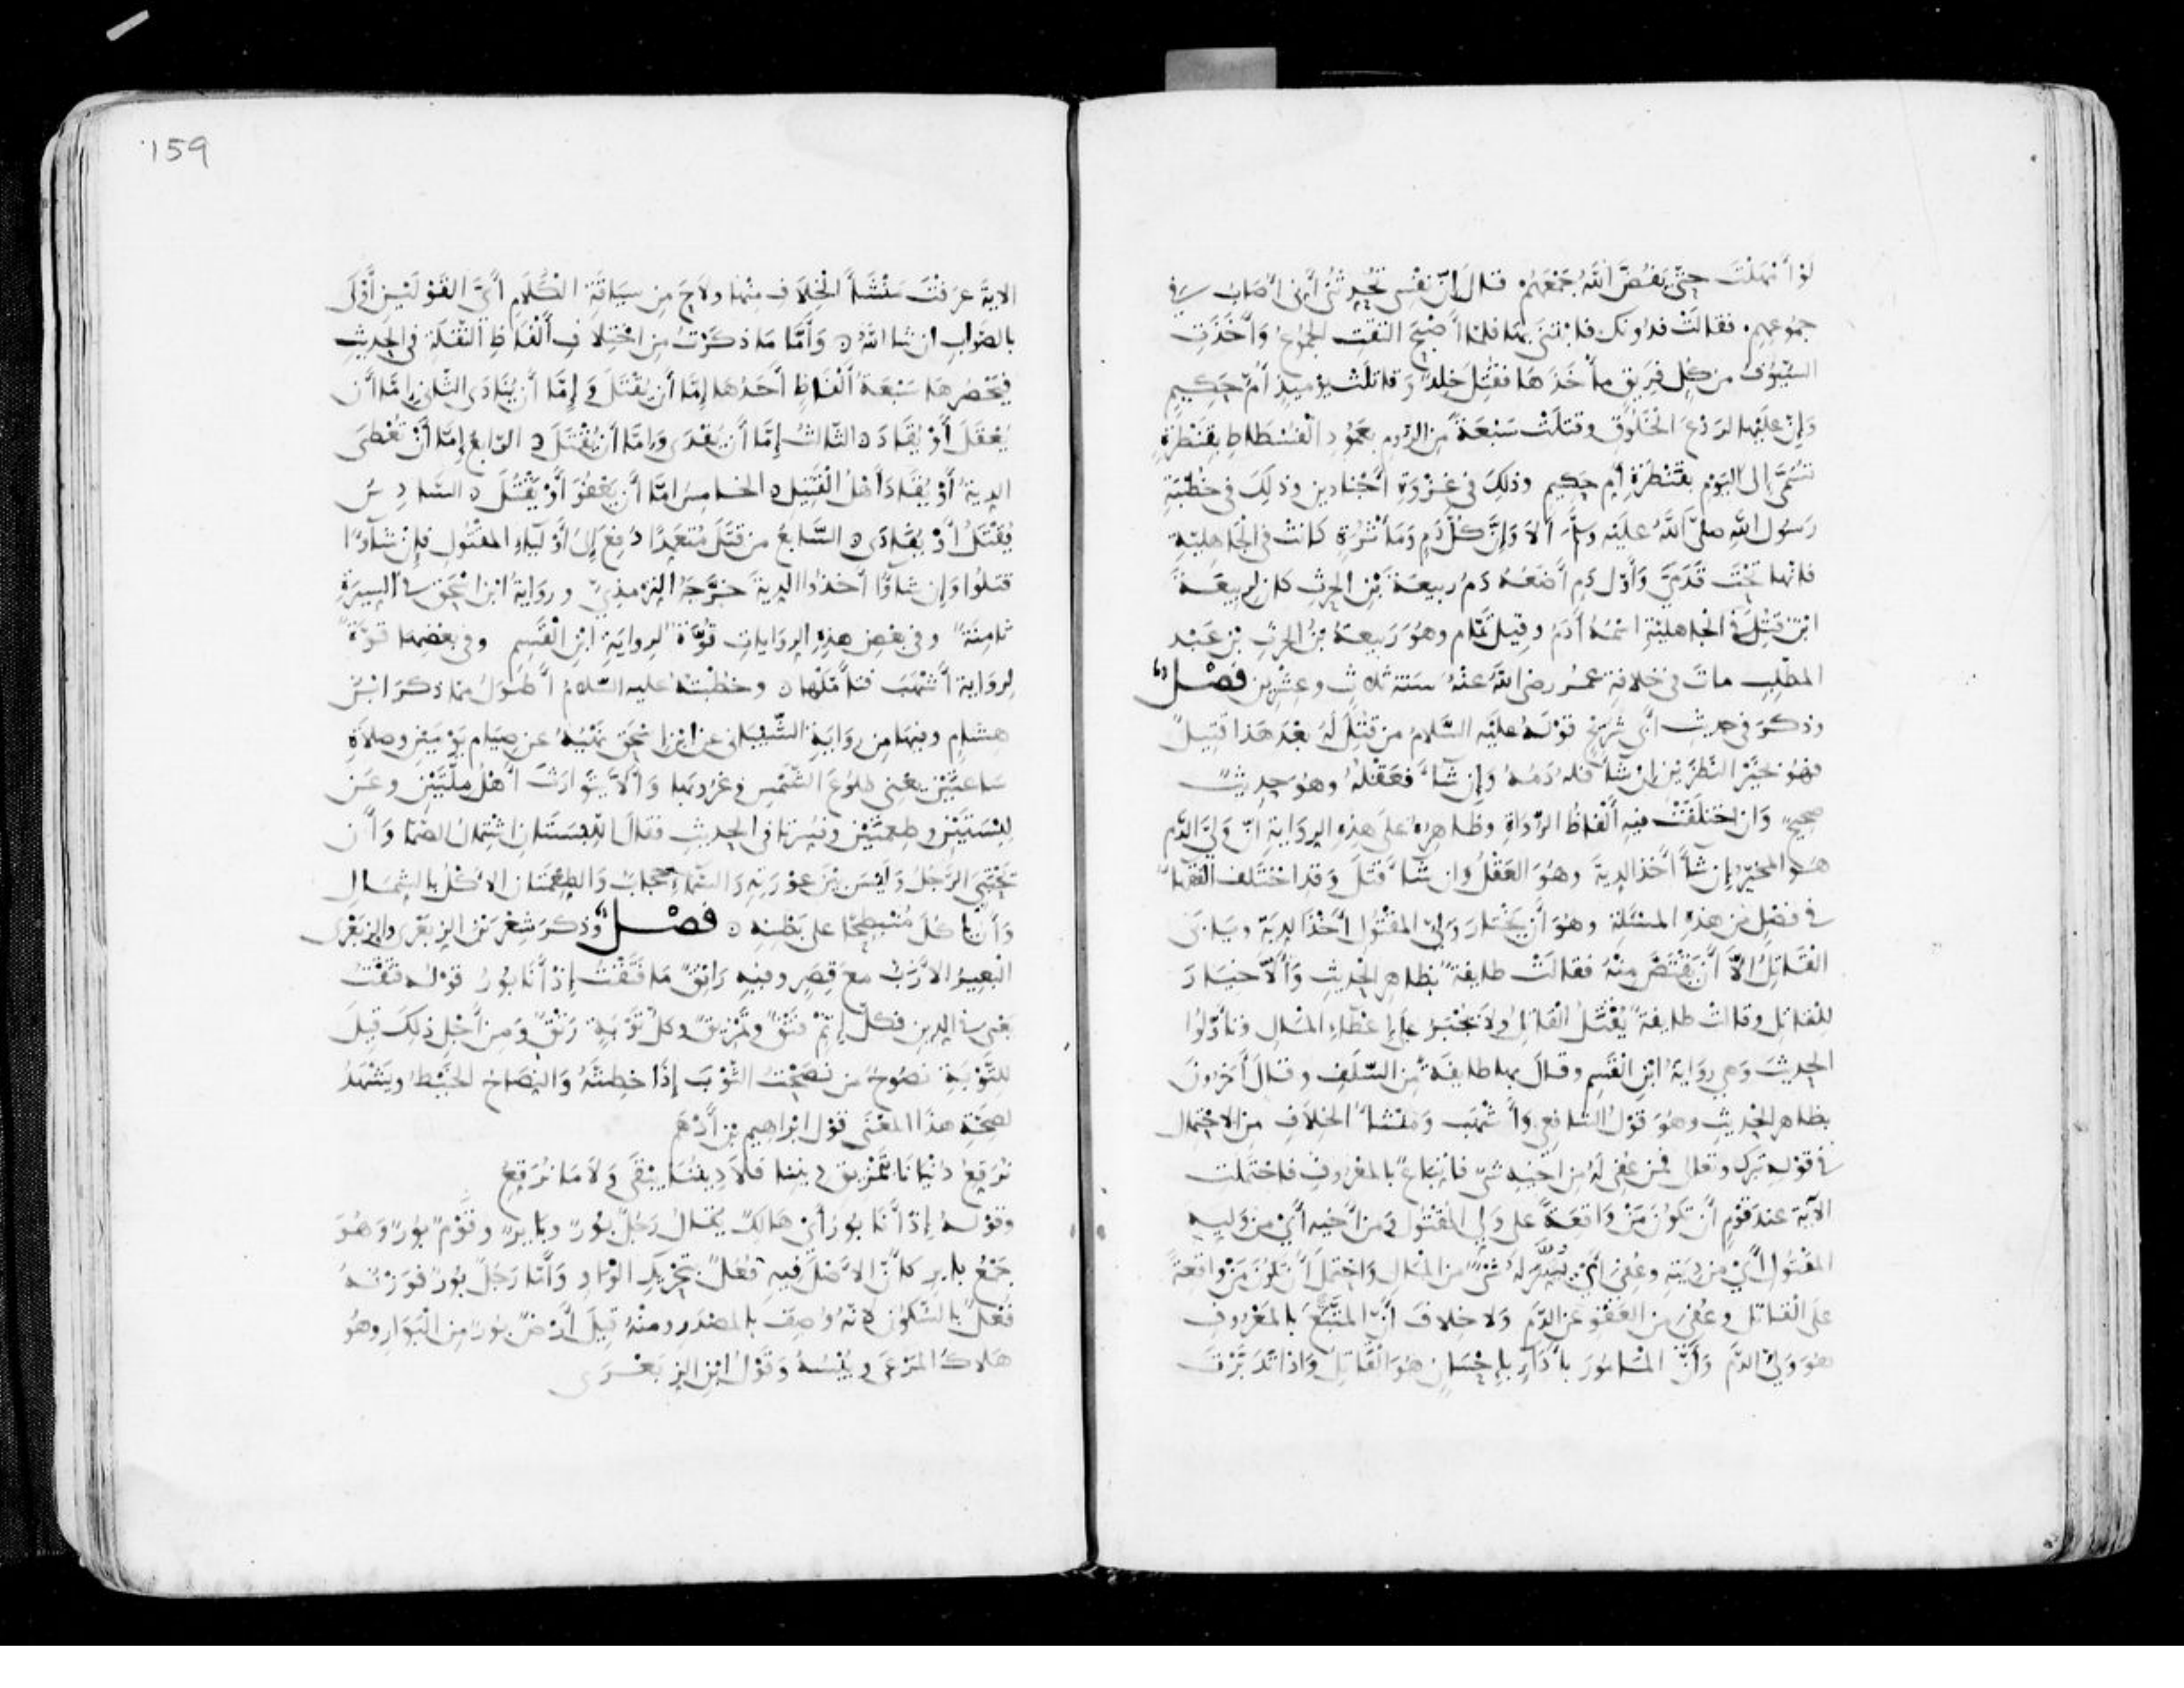 لَوْ أَمْهَلْتَ حَتَّى يَفُضَّ اللهُ جَمْعَهُمْ قال إنّ نفسي تُحدثني أنِّي أُصاب في
جموعهم. فقالت فدونك فابْتنى بها فلما أصبح التقت الجموع وأخذتِ
السُّيُوفُ من كل فريق مأخذها فقُتِلَ خالد وقاتلت يوميذ أمّ حكيم
وإنّ عليها لردْع الخَلُوقِ وقتلت سبعةً من الروم بعمود الفسطاط بقنطرةٍ
تُسمَّى إلى اليوم بقنطرة أم حكيم وذلك في غزوة أجنادين وذلك في خطبة
رسول الله صلى الله عليه وسلم ألا وإنّ كل دمٍ ومأثُرةٍ كانت في الجاهلية
فانها تحت قدمي وأول دم أضعه دم ربيعة بن الحرث كان لربيعة
ابن قُتِل في الجاهلية اسمه آدم وقيل تمام وهو ربيعة بن الحرث بن عبد
المطلب مات في خلافة عمر رضي الله عنه سنة ثلاث وعشرين فصل
وذكر في حديث أبي شريح قوله عليه السلام من قُتِل له بعد هذا قتيل
فهو بخير النظرين إن شا فله دمه وإن شا فعقله وهو حديث
صحيح وان اختلفت فيه ألفاظ الرواة وظاهره على هذه الرواية انّ ولي الدم
هو المخير إن شا أخذ الدية وهو العقل وان شا قتل وقد اختلف الفقها
في فصل من هذه المسئلة وهو أن يختار ولي المقتول أخذ الدية ويابى
القاتل الا أن يقتص منه فقالت طايفة بظاهر الحديث وألا خيار
للقاتل وقالت طايفة يُقتل القاتل ولا يجبر على إعطاء المال وتأولوا
الحديث وهي رواية ابن القسم وقال بها طايفة من السلف وقال آخرون
بظاهر الحديث وهو قول الشافعي وأشهب ومنشأ الخلاف من الاحتمال
في قوله تبرك وتعلى فمن عفي له من اخيه شي فاتباع بالمعروف فاحتملت
الآية عند قوم أن تكون من واقعة على ولي المقتول ومن أخيه أي من وليه
المقتول أي من ديته وعُفي أي يُسِّر له شي من المال واحتمل أن تكون من واقعة
على القاتل وعُفي من العفو عن الدم ولا خلاف أن المتّبع بالمعروف
هو ولي الدم وأنّ المامور بأداءٍ بإحسان هو القاتل واذا تدبرت
159
الاية عرفت منشأ الخلاف منها ولاح من سياقة الكلام أيّ القولين أولى
بالصواب ان شا الله ه وأمّا ما ذكرت من اختلاف ألفاظ النقلة في الحديث
فيحصرها سبعة ألفاظ أحدها إمّا أن يقتل وإمّا أن يفادى الثاني إمّا أن
يُعقل أو يقاد ه الثالث إمّا أن يفدى وإمّا أن يُقتل ه الرابع إمّا أن تعطى
الدية أو يُقاد أهل القتيل ه الخامس إمّا أن يعفو أو يقتل ه السادس
يُقتل أو يفادى ه السابع من قتل متعمدا دفع إلى أولياء المقتول فإن شاءوا
قتلوا وإن شاوا أخذوا الدية خرّجه الترمذي ورواية ابن اسحق في السيرة
ثامنة وفي بعض هذه الروايات قوّة لرواية ابن القسم وفي بعضها قوّة
لرواية أشهب فتأمّلها ه وخطبته عليه السلام أطول مما ذكر ابن
هشام وفيها من رواية الشيباني عن ابن اسحق نهيه عن صيام يومين وصلاة
ساعتين يعني طلوع الشمس وغروبها وألا يتوارث أهل ملّتين وعن
لبستين وطعمتين وفسرتا في الحديث فقال اللبستان اشتمال الصما وأن
يحتبي الرجل وليس بين عورته والسماء حجاب والطعمتان الاكل بالشمال
وأن ياكل منبطحا على بطنه ه فصل وذكر شعر بن الزبعرى والزبعرى
البعير الأزبّ مع قِصَر وفيه راتق ما فتقت إذ أنا بور قوله فتقت
يعني في الدين فكل إثم فتق وتمزيق وكل توبة رتق ومن أجل ذلك قيل
للتوبة نصوح من نصحت الثوب إذا خطته والنصاح الخيط ويشهد
لصحة هذا المعنى قول ابراهيم بن أدهم
نُرقِع دنيانا بتمزيق ديننا فلا ديننا يبقى ولا ما نُرقع
وقوله إذ أنا بور أي هالك يقال رجل بور وباير وقوم بور وهو
جمع باير كان الأصل فيه فعل بتحريك الواو وأما رجل بور فوزنه
فعل بالسكون لانه وُصِف بالمصدر ومنه قيل أرض بور من البوار وهو
هلاك المرعى ويبسه وقول ابن الزبعرى